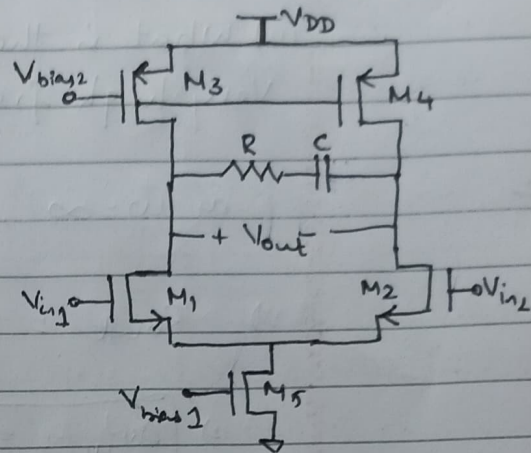 VDD
Vbias2
M3
M4
R
C
+ Vout -
Vin1
M1
M2
Vin2
Vbias1
M5